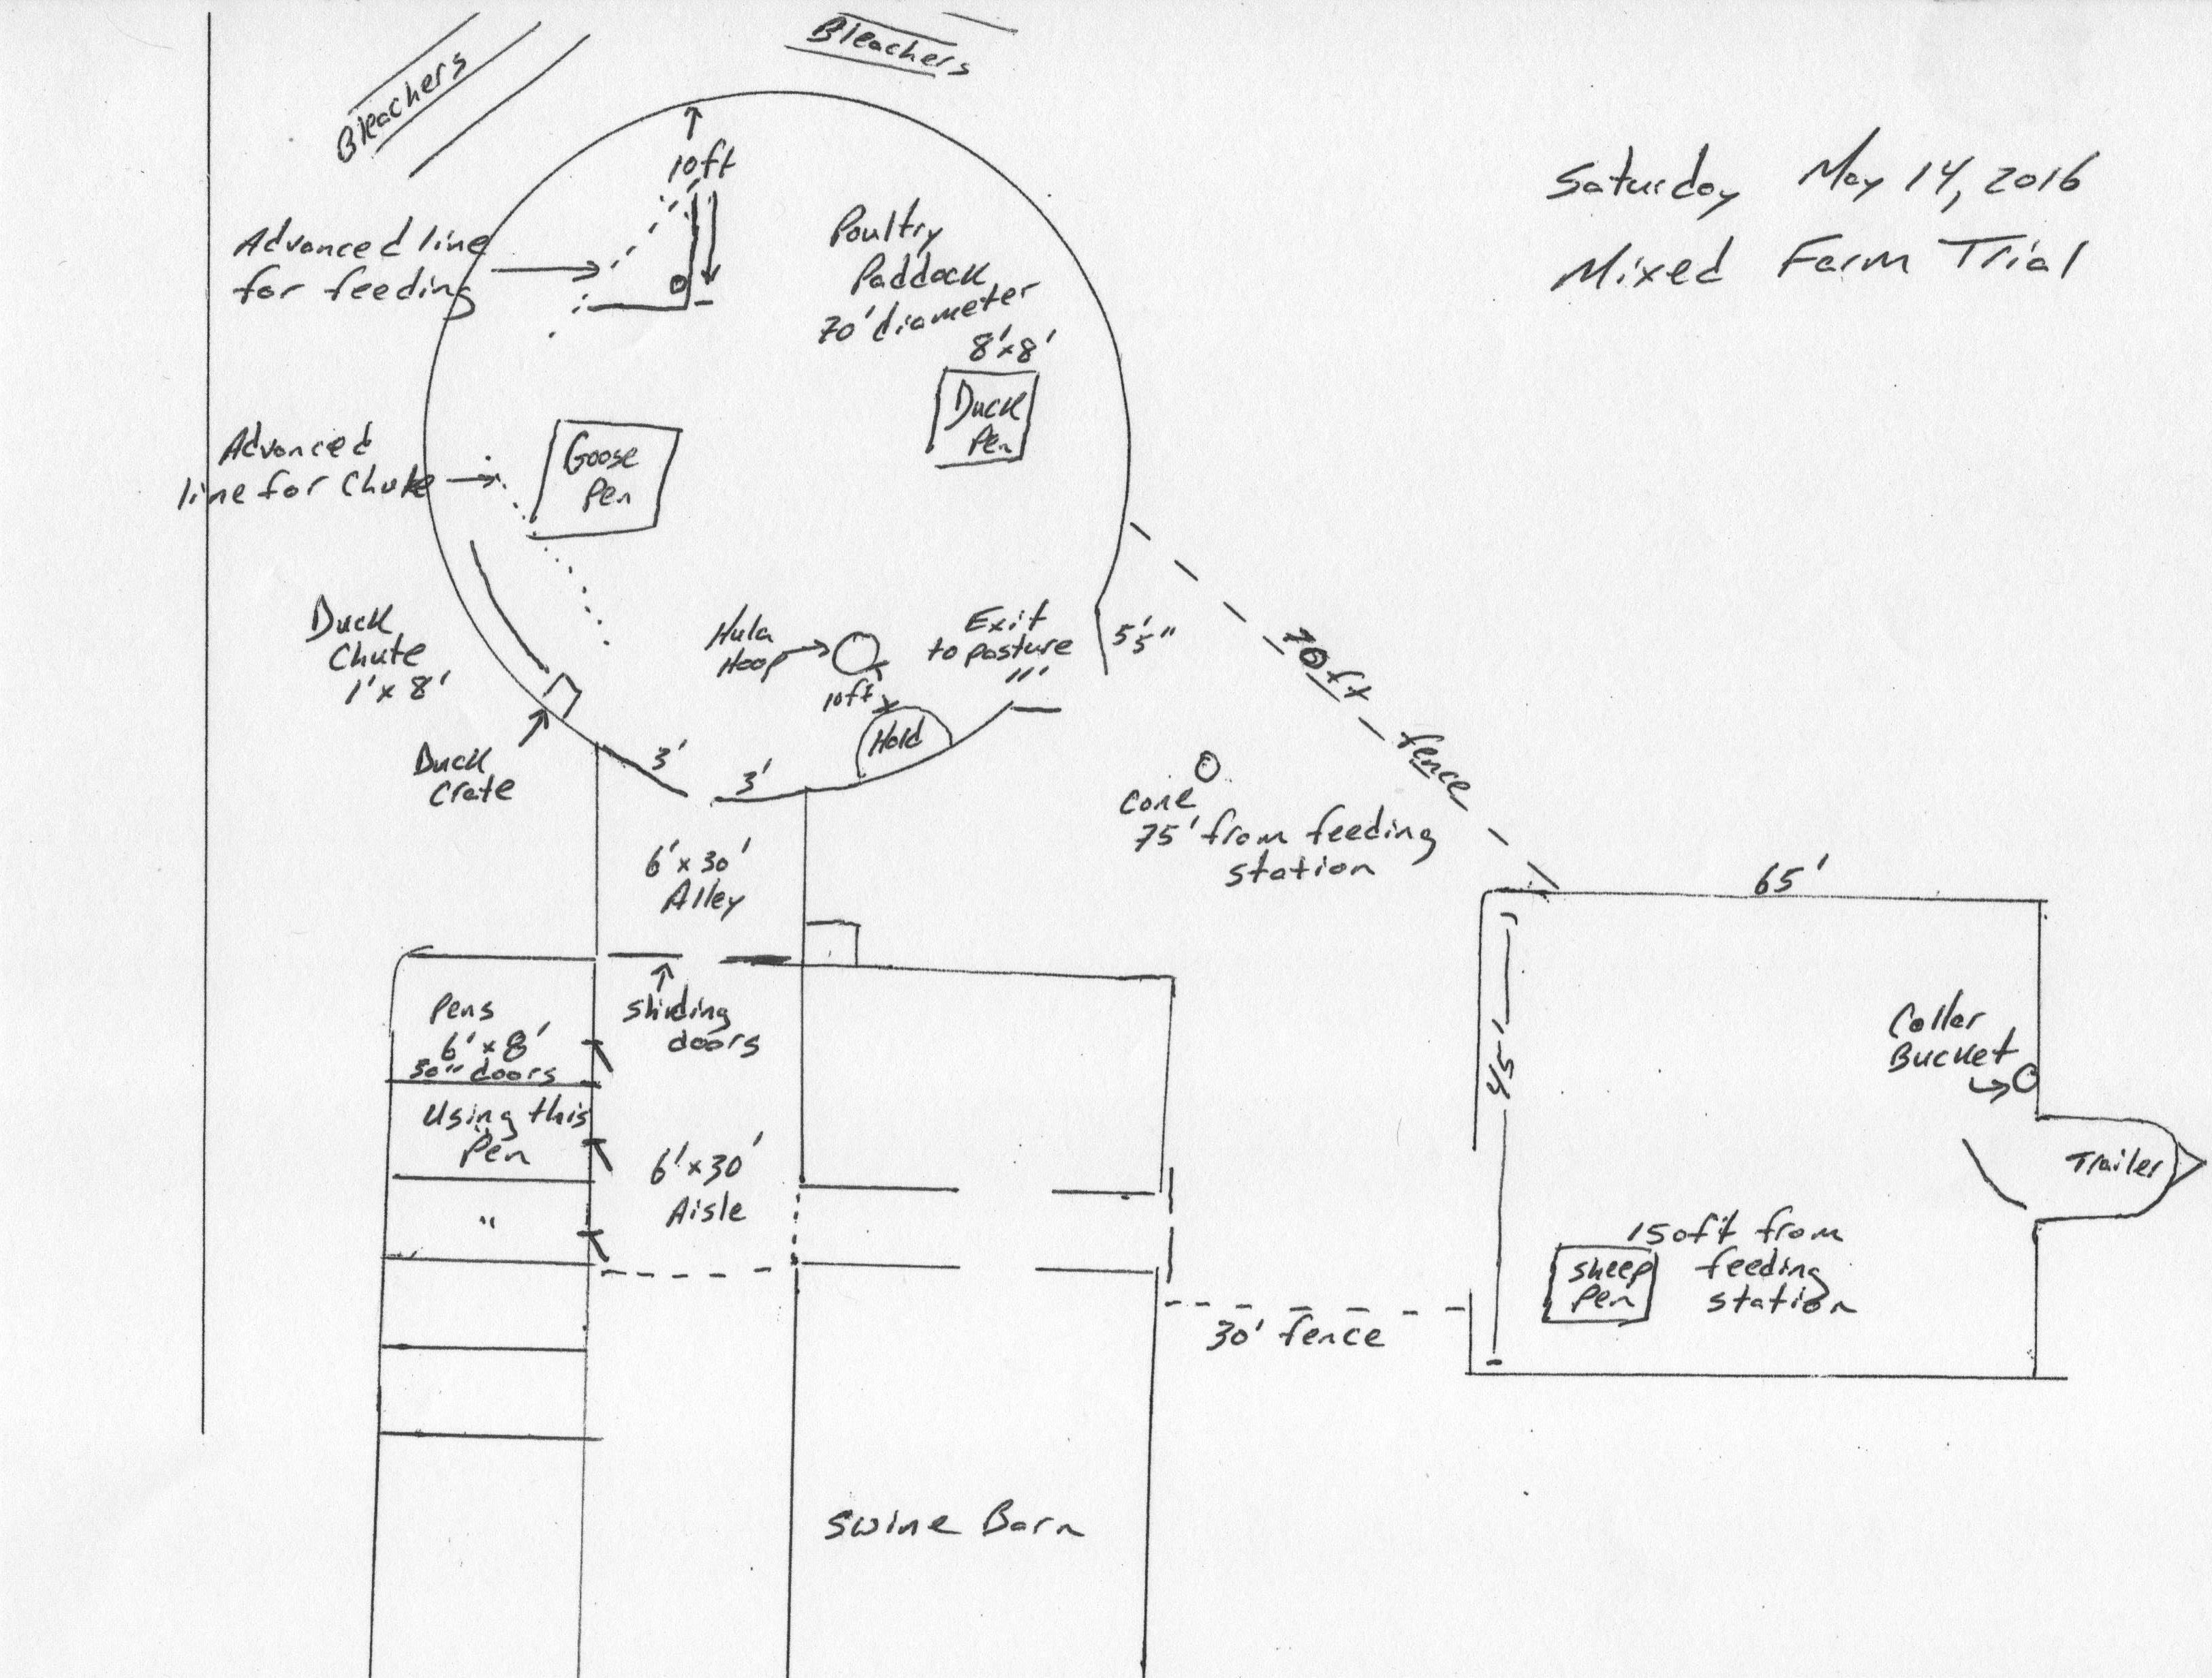 Bleachers
Bleachers
Saturday May 14, 2016
Mixed Farm Trial
10ft
Advanced line
for feeding
Poultry
Paddock
70' diameter
8'x8'
Duck
Pen
Advanced
line for Chute
Goose
Pen
Duck
Chute
1'x 8'
Hula
Hoop
10ft
Exit
to pasture
5'5"
Hold
Duck
Crate
3'
3'
70ft fence
Cone
75' from feeding
station
6'x 30'
Alley
65'
Pens
6'x 8'
30" doors
Sliding
doors
Using this
Pen
"
6'x30'
Aisle
45'
Collar
Bucket
Trailer
150ft from
feeding
station
Sheep
Pen
30' fence
Swine Barn